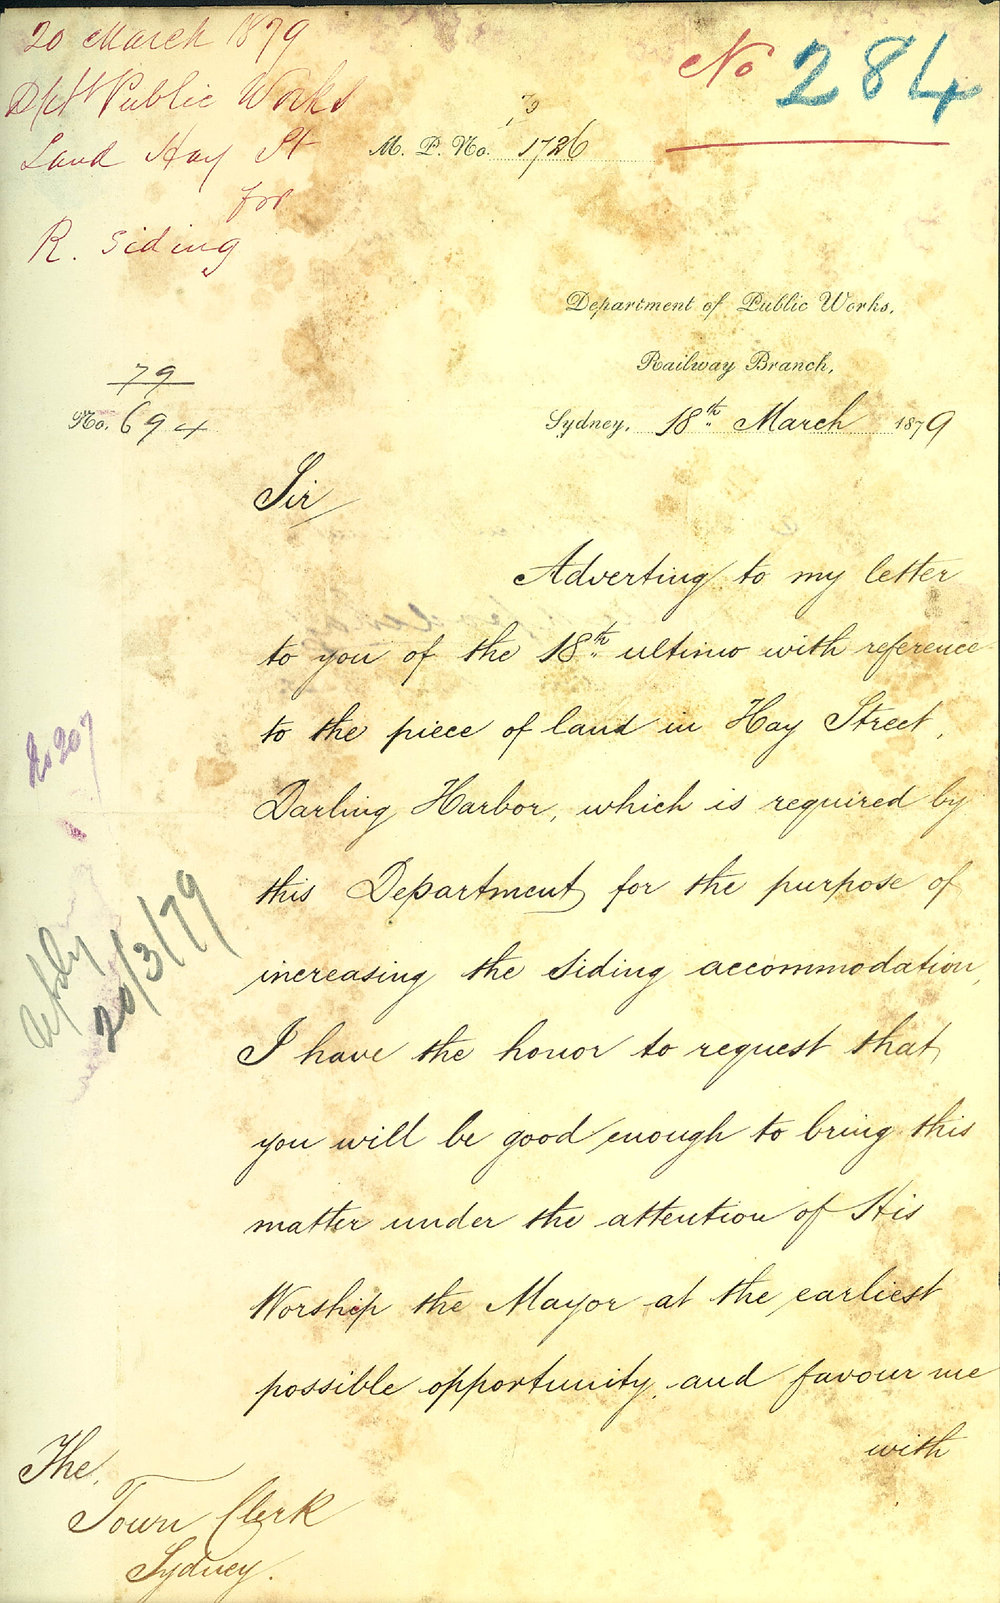 20 March 1879
Dpt Public Works
Land Hay St
for
R. Siding
No 284
79
M. P. No. 1726
Department of Public Works,
Railway Branch,
Sydney, 18th March 1879
79
No. 694
Sir
Adverting to my letter
to you of the 18th ultimo with reference
to the piece of land in Hay Street,
Darling Harbor, which is required by
this Department for the purpose of
increasing the siding accommodation,
I have the honor to request that
you will be good enough to bring this
matter under the attention of His
Worship the Mayor at the earliest
possible opportunity, and favour me
with
No 207
20/3/79
The
Town Clerk
Sydney.